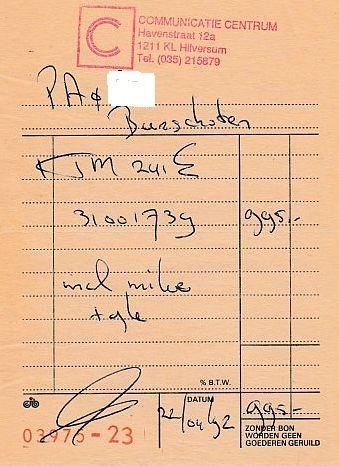 C
COMMUNICATIE CENTRUM
Havenstraat 12a
1211 KL Hilversum
Tel. (035) 215879
PAφ
KTM 241E
31001739 995.-
incl mike
% B.T.W.
DATUM
22/04/92 995.-
03975-23
ZONDER BON
WORDEN GEEN
GOEDEREN GERUILD